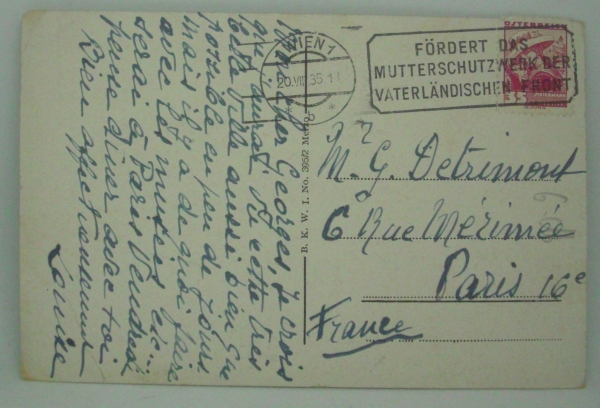 Mon cher Georges, je crois
que j'aurai vu cette très
belle Ville aussi bien que
possible en peu de jours
mais il y a de quoi faire
avec les musées etc..
serai à Paris Vendredi
pense diner avec toi
Bien affectueusement
Louise
B. K. W. I. No. 395/2
WIEN 1
20.VIII.35
FÖRDERT DAS
MUTTERSCHUTZWERK DER
VATERLÄNDISCHEN FRONT
ÖSTERREICH
M. G. Detrimont
6 Rue Mérimée
Paris 16e
France